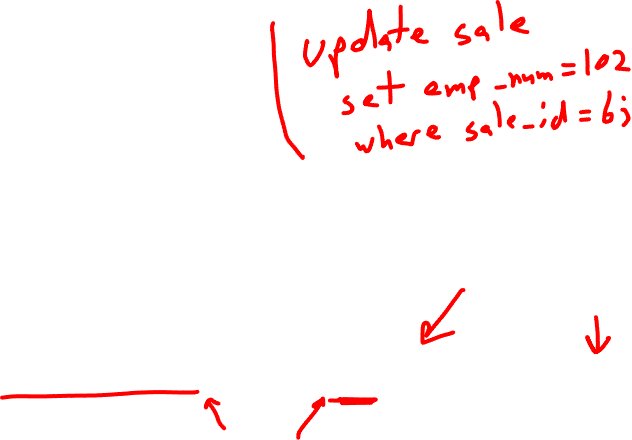 update sale
set emp_num=102
where sale_id=6;